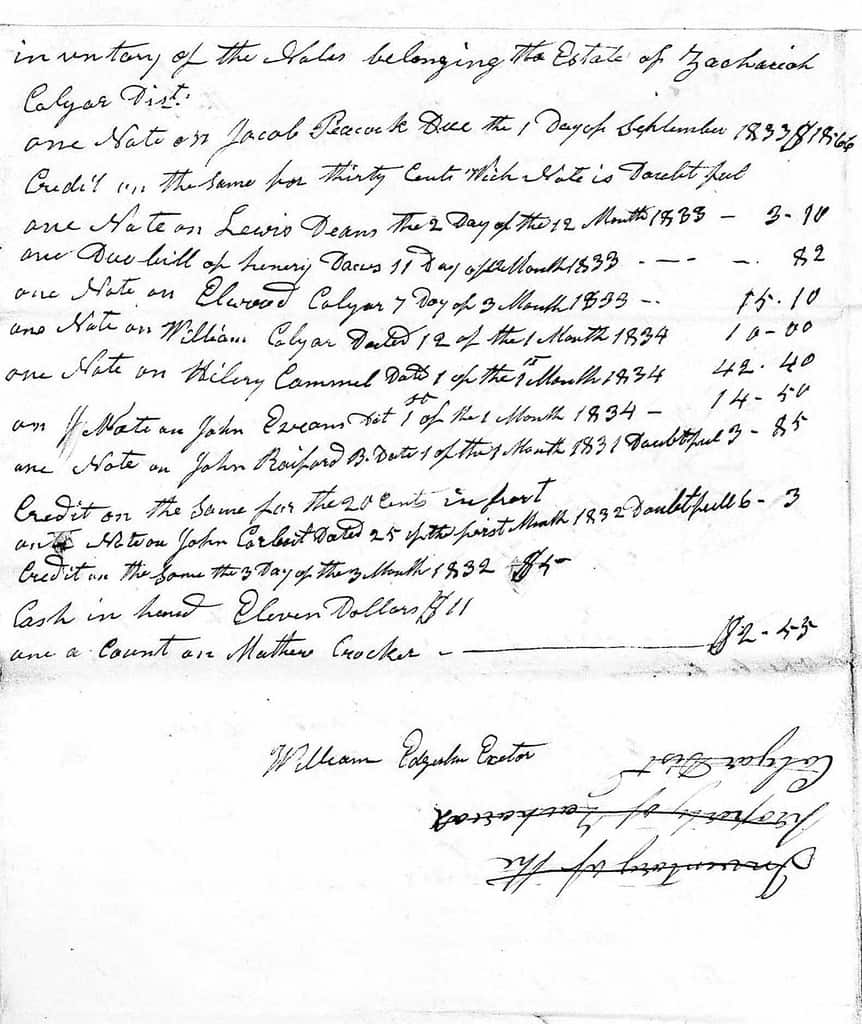 inventory of the Notes belonging tto Estate of Zachariah
Colyar Dist:
one Note on Jacob Peacock Due the 1 Day of September 1833 $18.66
Credit on the same for thirty Cents Wich Note is Doubtful
one Note on Lewis Deans the 2 Day of the 12 Month 1833 - 3-90
one Due bill of henery Daces 11 Day of 12 Month 1833 - -- -. 82
one Note on Elwood Colyar 7 Day of 3 Month 1833 -. 15.10
one Note on William Colyar Dated 12 of the 1 Month 1834 10-00
one Note on Hilery Cammel Date 1 of the 1st Month 1834 42.40
on Note on John Evans Dat 1st of the 1 Month 1834 - 14-50
one Note on John Raiford B. Date 1 of the 1 Month 1831 Doubtful 3-85
Credit on the same for the 20 Cents in part
one Note on John Corbeit Dated 25 of the first Month 1832 Doubtfull 6-3
Credit on the Same the 3 Day of the 3 Month 1832 $5-
Cash in hand Eleven Dollars $11
one a Count on Mathew Crocker - $2-53
William Exetor
Inventory of the
Property of Zachariah
Colyar Dist